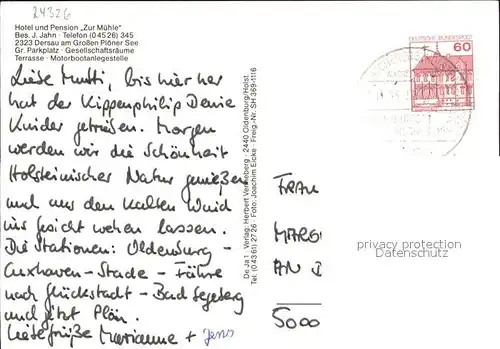 24326
Hotel und Pension „Zur Mühle"
Bes. J. Jahn · Telefon (0 45 26) 345
2323 Dersau am Großen Plöner See
Gr. Parkplatz · Gesellschaftsräume
Terrasse · Motorbootanlegestelle
Liebe Mutti, bis hier her
hat der Kippenphilip Deine
Kinder getrieben. Morgen
werden wir die Schönheit
Holsteinischer Natur genießen
und uns den kalten Wind
ins gesicht wehen lassen.
Die Stationen: Oldenburg-
Cuxhaven-Stade-Fähre
nach Glückstadt-Bad Segeberg
und jetzt Plön.
Liebe grüße Marianne + Jens
De Ja 1 · Verlag: Herbert Venneberg · 2440 Oldenburg/Holst.
Tel. (0 43 61) 27 26 · Foto: Joachim Eicke · Freig.-Nr. SH 369-1116
DEUTSCHE BUNDESPOST
60
FRAU
MARG
AN D
5000
privacy protection
Datenschutz